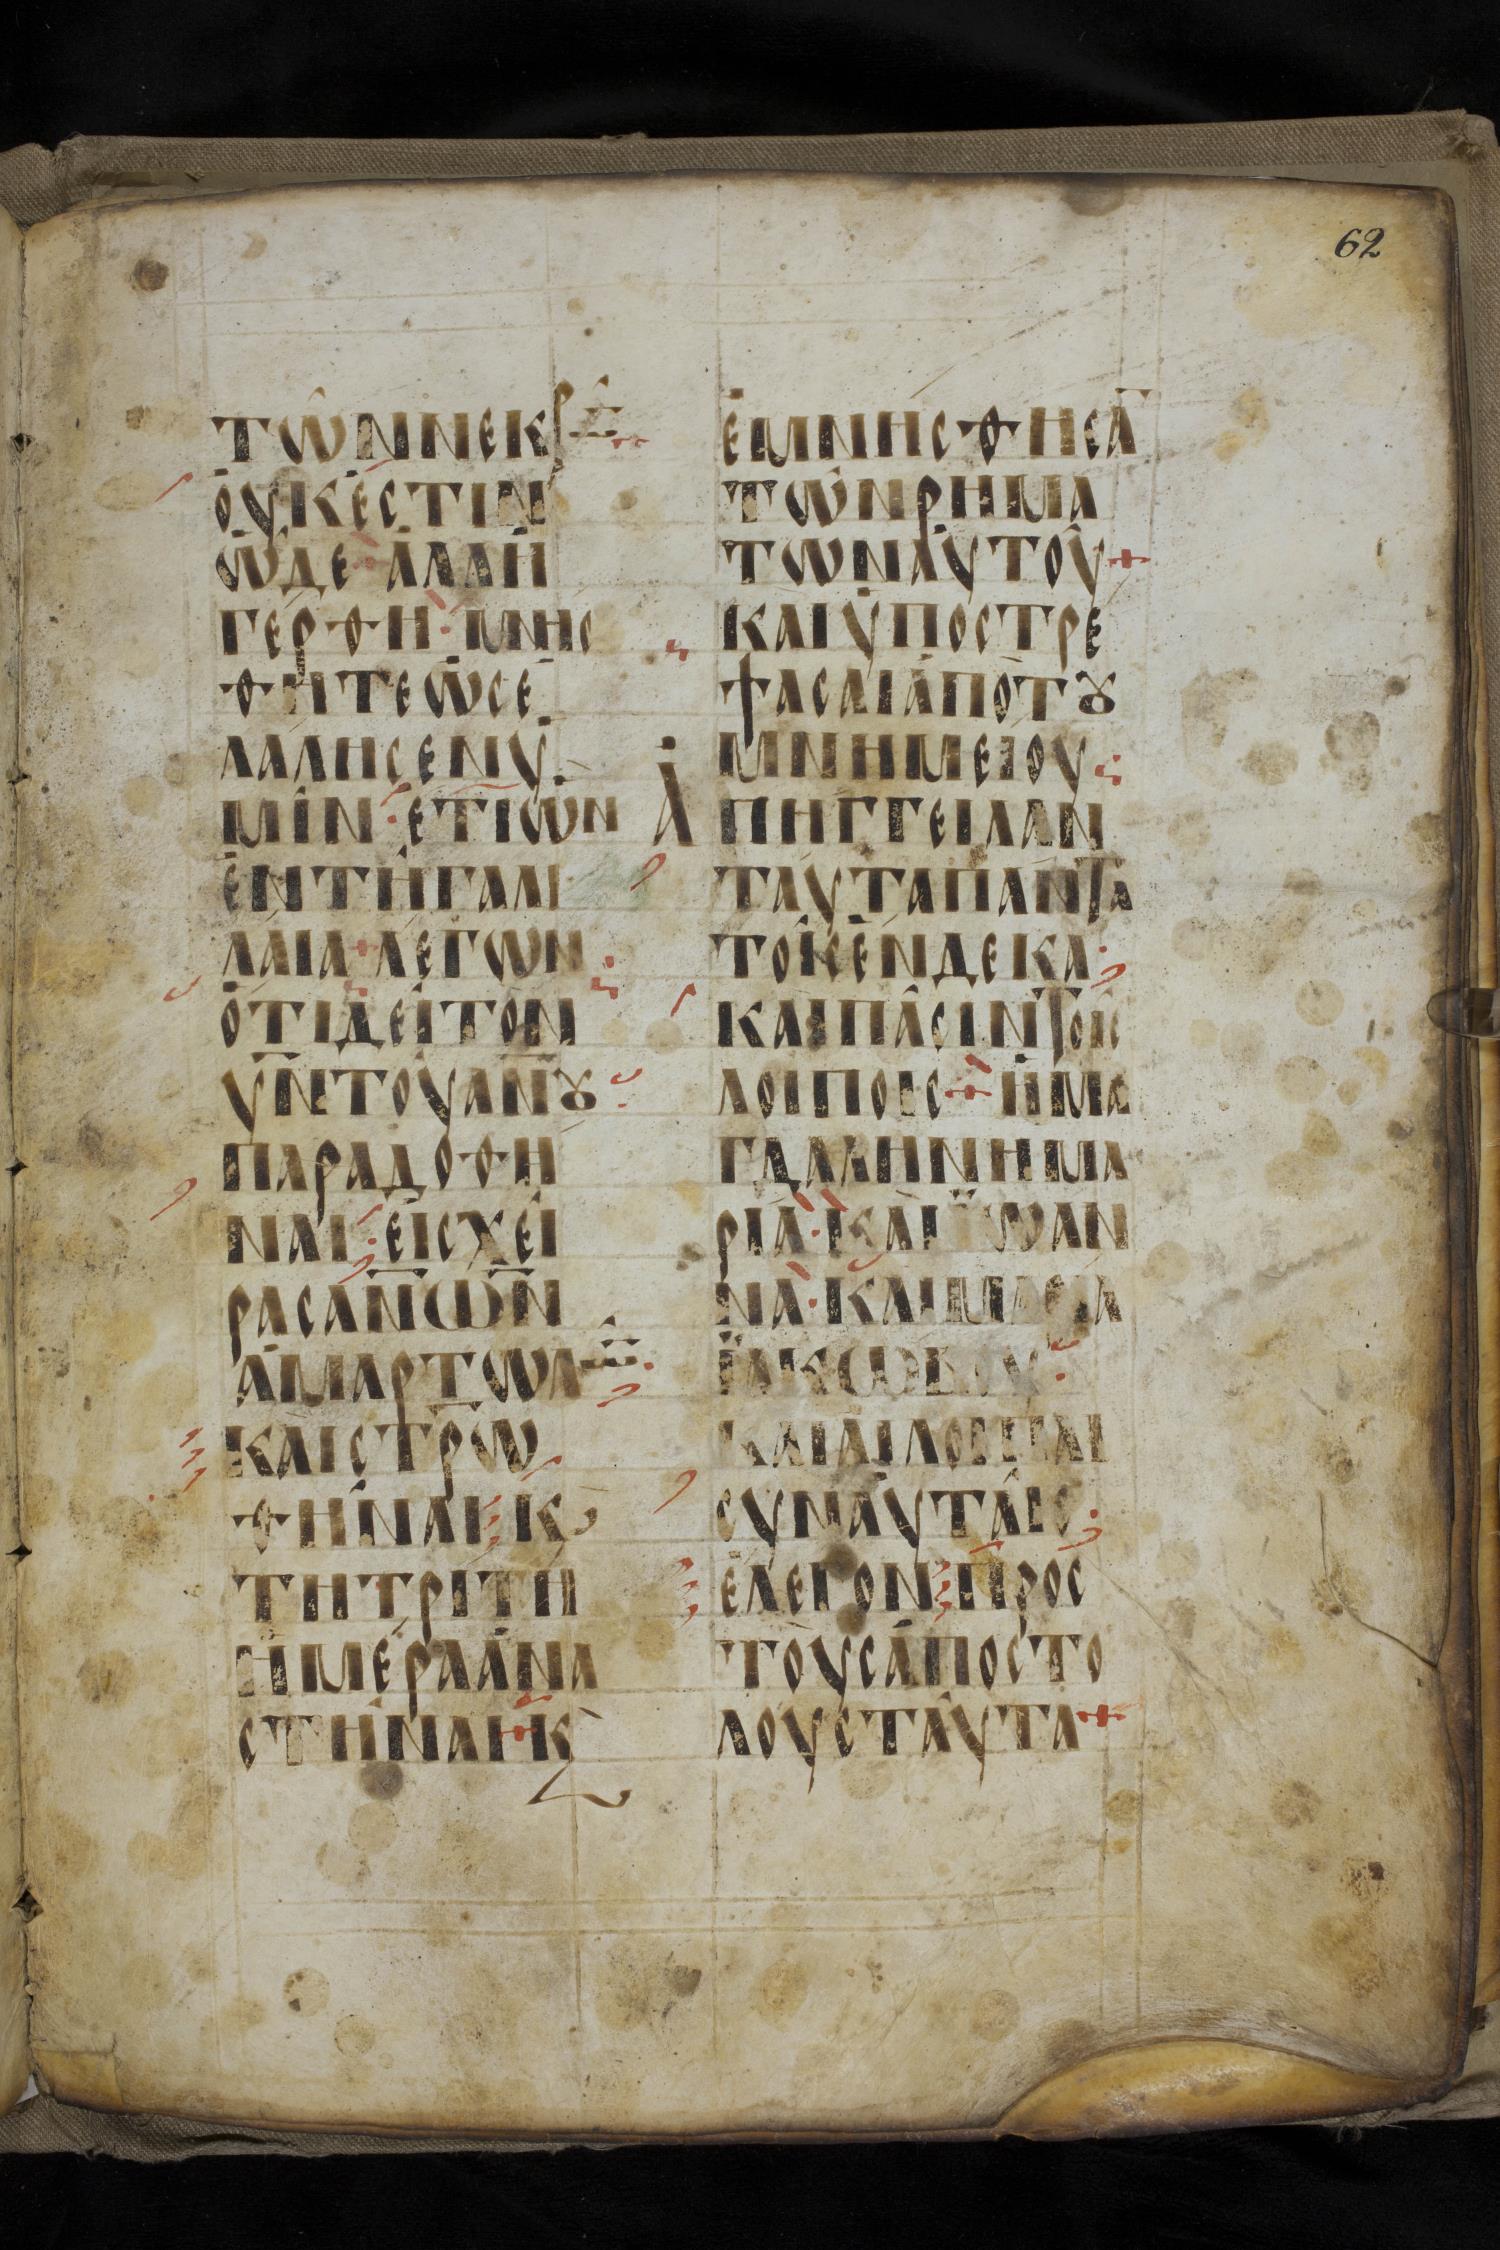 62
ΤΩΝΝΕΚΡῶ
ΟΥΚΕϹΤΙΝ
ὯΔΕ· ἈΛΛΗ
ΓΕΡΘΗ· ΜΝΗϹ
ΘΗΤΕΩϹΕ
ΛΑΛΗϹΕΝΥ
ΜΙΝ· ΕΤΙΩΝ
ΕΝΤΗΓΑΛΙ
ΛΑΙΑ+ΛΕΓΩΝ
ΟΤΙΔΕΙΤΟΝ
Υ̅Ν̅ΤΟΥΑ̅Ν̅Ȣ
ΠΑΡΑΔΟΘΗ
ΝΑΙ· ΕΙϹΧΕΙ
ΡΑϹΑ̅Ν̅Ω̅Ν̅
ἉΜΑΡΤΩΛῶ
ΚΑΙϹΤΡΩ̅
ΘΗΝΑΙ Κ,
ΤΗΤΡΙΤΗ
ΗΜΕΡΑΑΝΑ
ϹΤΗΝΑΙ+Κ,
ΕΜΝΗϹΘΗϹΑ̅
ΤΩΝΡΗΜΑ
ΤΩΝΑΥΤΟΥ+
ΚΑΙΥΠΟϹΤΡΕ
ΨΑϹΑΙΑΠΟΤȢ
ΜΝΗΜΕΙΟΥ
ἈΠΗΓΓΕΙΛΑΝ
ΤΑΥΤΑΠΑΝΤΑ
ΤΟΙϹΕΝΔΕΚΑ·
ΚΑΙΠΑϹΙΝΤΟΙϹ
ΛΟΙΠΟΙϹ+ΗΜΑ
ΓΔΑΛΗΝΗΜΑ
ΡΙΑ· ΚΑΙΪΩΑΝ
ΝΑ· ΚΑΙΜΑΡΙΑ
ΪΑΚΩΒΟΥ·
ΚΑΙΑΙΛΟΙΠΑΙ
ϹΥΝΑΥΤΑΙϹ·
ΕΛΕΓΟΝ ΠΡΟϹ
ΤΟΥϹΑΠΟϹΤΟ
ΛΟΥϹΤΑΥΤΑ+